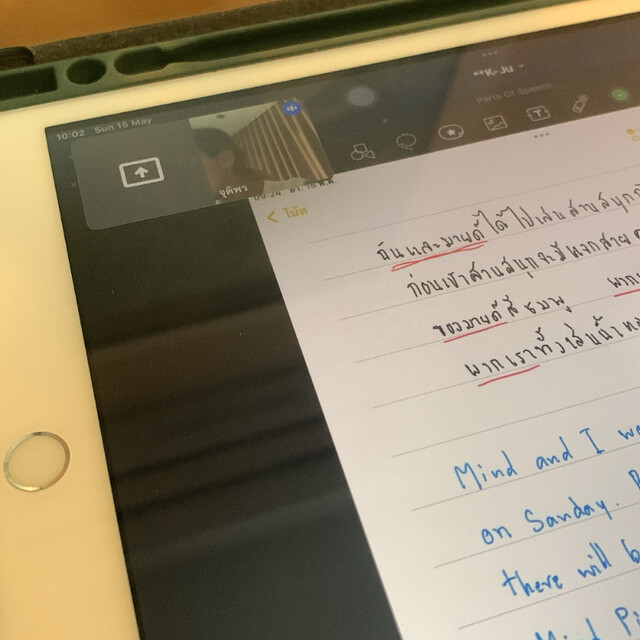 10:02 Sun 15 May
**K-JU
Parts Of Speech
จุติพร
โน้ต
ฉันและมายด์ได้ไปเล่นสวนสนุก
ก่อนเข้าสวนสนุกจะมีหมวก
ของมายด์สีชมพู
พวกเราทั้ง
Mind and I we
on Sunday.
there will b
Mind